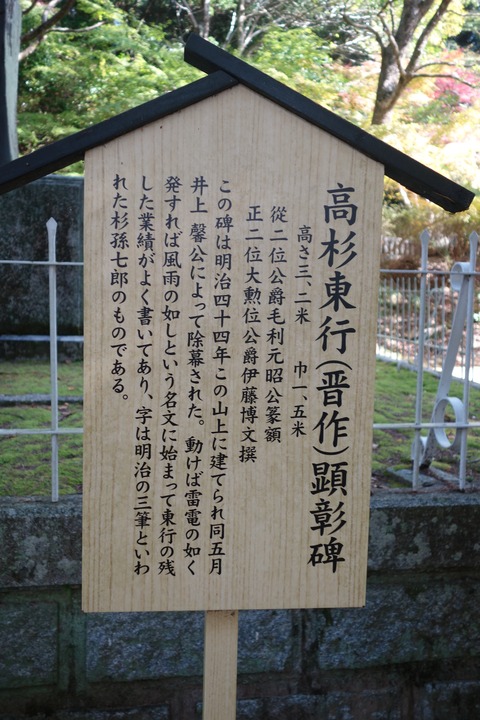 高杉東行(晋作)顕彰碑
高さ三、二米 巾一、五米
従二位公爵毛利元昭公篆額
正二位大勲位公爵伊藤博文撰
この碑は明治四十四年この山上に建てられ同五月
井上 馨公によって除幕された。動けば雷電の如く
発すれば風雨の如しという名文に始まって東行の残
した業績がよく書いてあり、字は明治の三筆といわ
れた杉孫七郎のものである。